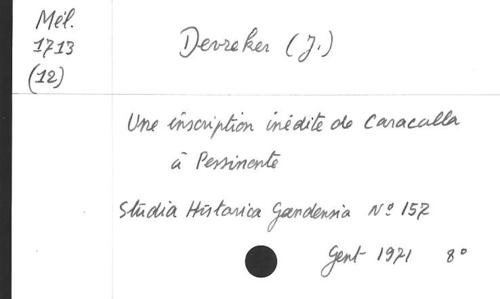 Mél.
1713
(12)
Devreker (J.)
Une inscription inédite de Caracalla
à Pessinonte
Studia Historica Gandensia Nº 157
Gent 1971 8°